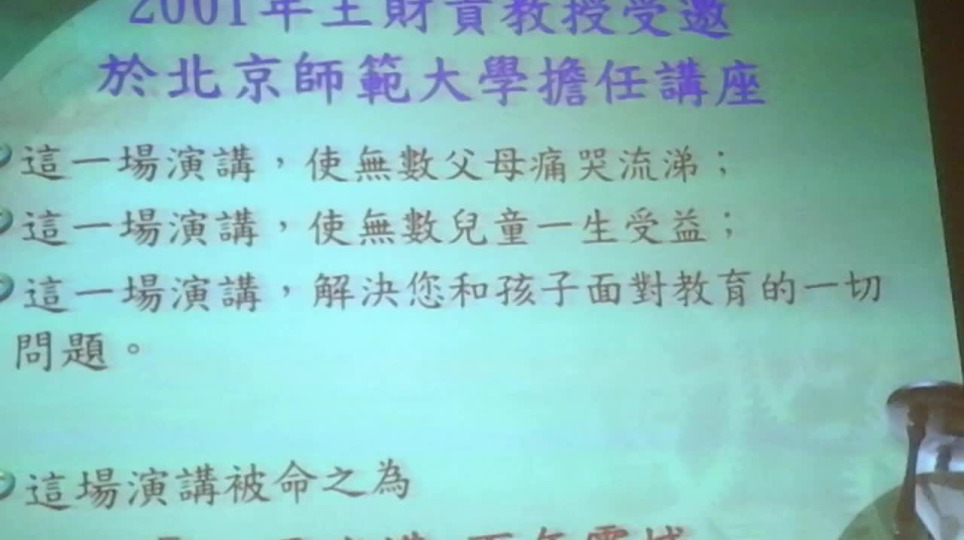 2001年王財貴教授受邀
於北京師範大學擔任講座
這一場演講，使無數父母痛哭流涕；
這一場演講，使無數兒童一生受益；
這一場演講，解決您和孩子面對教育的一切
問題。
這場演講被命之為